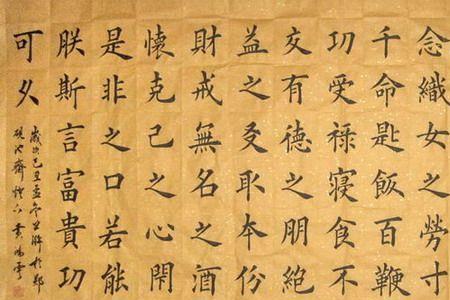 念織女之勞寸
千命匙飯百鞭
功受祿寢食不
交有德之朋絕
益之友取本份
財戒無名之酒
懷克己之心閇
是非之口若能
朕斯言富貴功
可久
歲次己丑孟冬 於鄭